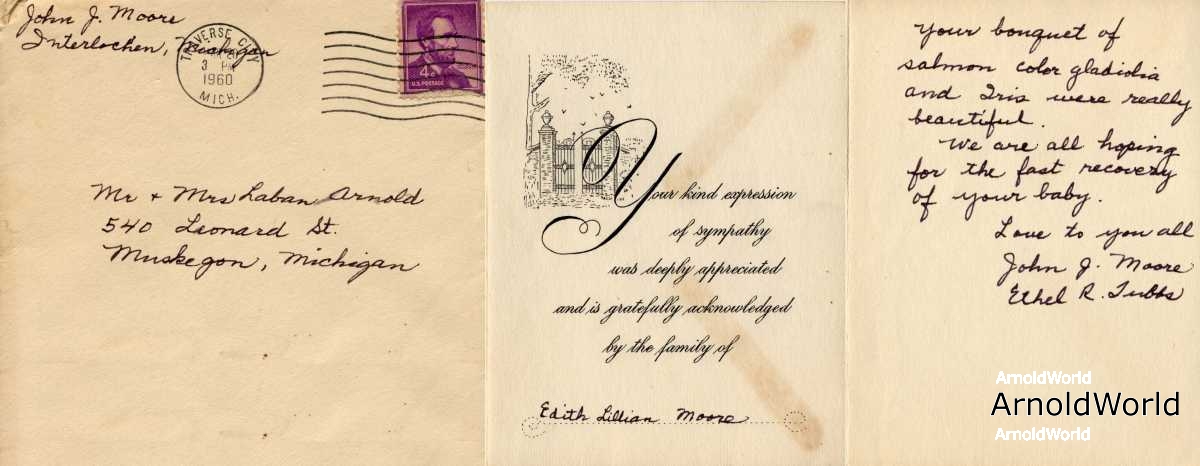 John J. Moore
Interlochen, Michigan
TRAVERSE CITY
3 PM
1960
MICH.
4¢
U.S. POSTAGE
Mr + Mrs Laban Arnold
540 Leonard St.
Muskegon, Michigan
Your kind expression
of sympathy
was deeply appreciated
and is gratefully acknowledged
by the family of
Edith Lillian Moore
Your bouquet of
salmon color gladiolia
and Iris were really
beautiful.
We are all hoping
for the fast recovery
of your baby.
Love to you all
John J. Moore
Ethel R. Tubbs
ArnoldWorld
ArnoldWorld
ArnoldWorld